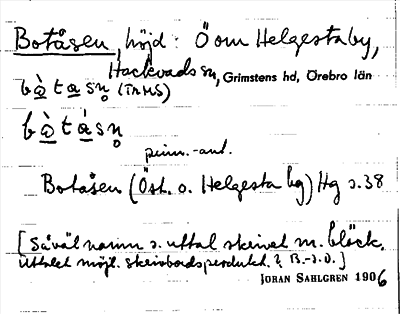 Botåsen, höjd: Ö om Helgesta by,
Hackvads sn, Grimstens hd, Örebro län
bò̱ta̱sn̥ (TRMS)
bò̱tá̱sn̥
penn.-ant.
Botåsen (Öst. o. Helgesta bg) Hg s.38
[Såväl namn s. uttal skrivet m. bläck.
Uttalet möjl. skrivbordsprodukt. ? B.-s.O.]
JOHAN SAHLGREN 1906